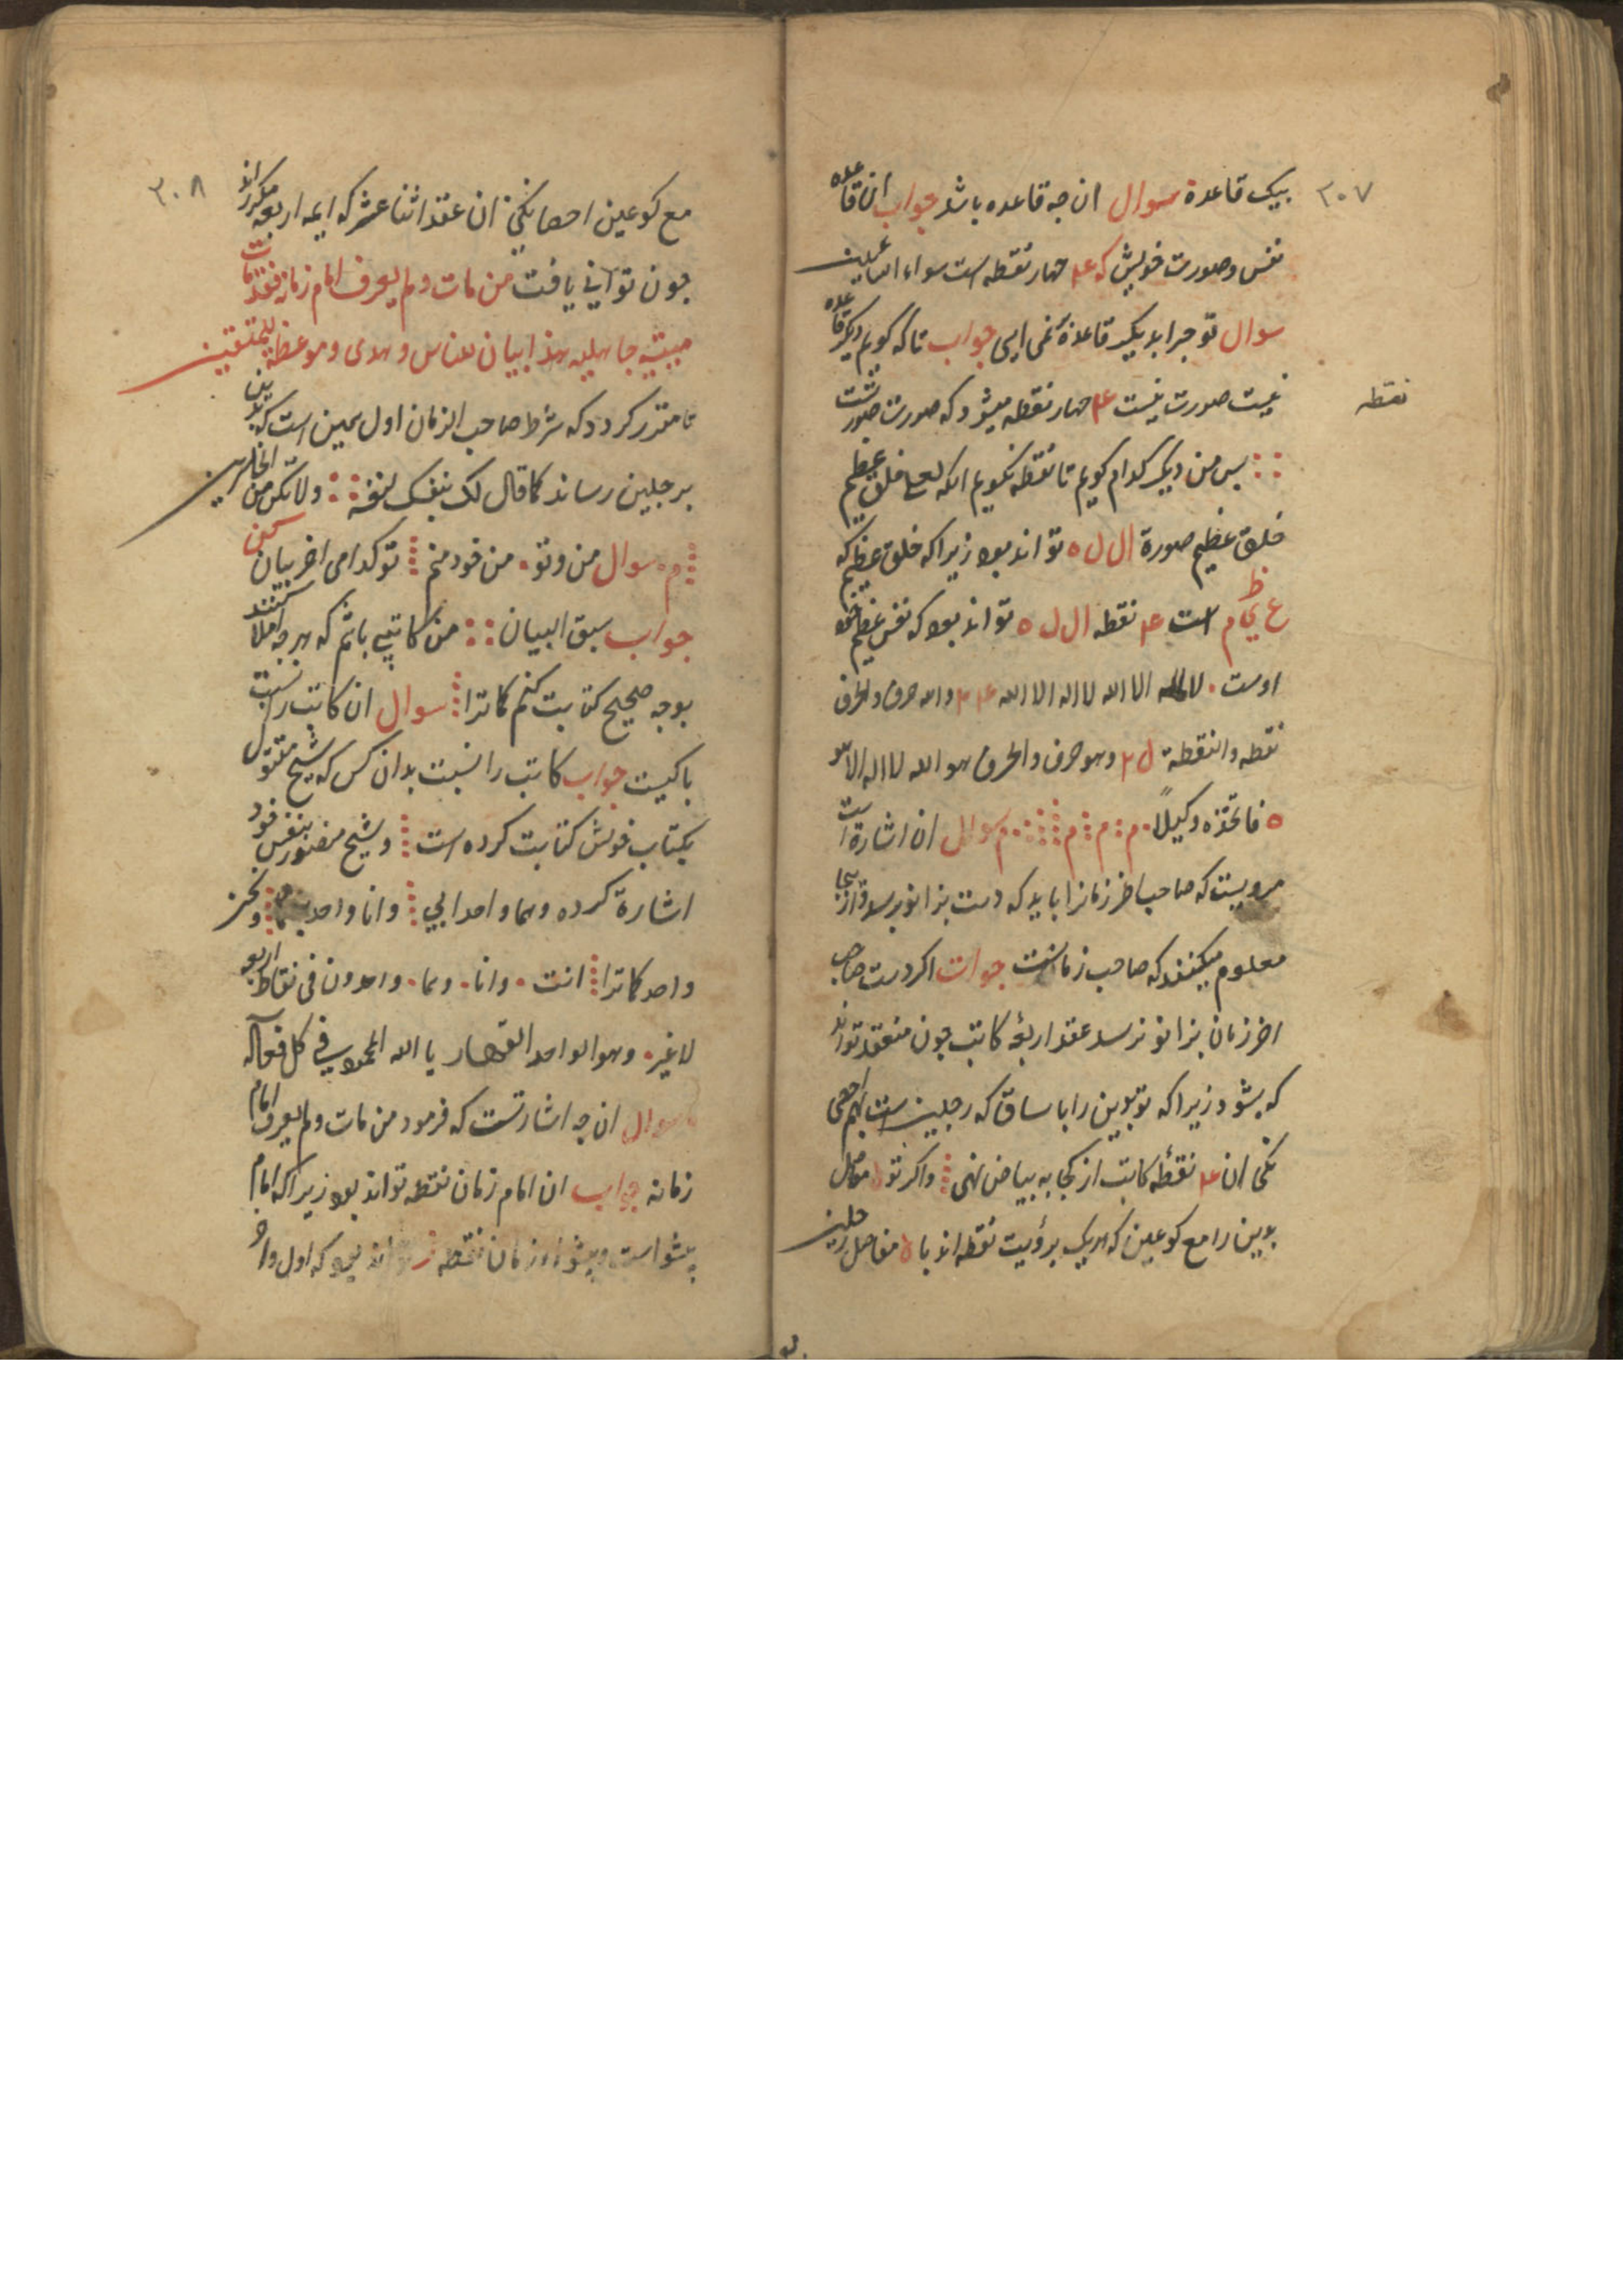 ٣٠٧
بیک قاعدة سوال ان جه قاعده باشد جواب ان قاعده
نفس وصورت خویش که ۴ جهار نقطه است سواء السایلین
سوال تو جرا بدیکر قاعدة نمی ایی جواب تا که کویم دیکر قاعده
نیست صورت نیست ۴ جهار نقطه میشود که صورت صورتست
نقطه
بس من دیکر کدام کویم تا نقطه نکویم انکه لعلی خلق عظیم
خلق عظیم صورة ال ل ه تواند بود زیرا که خلق عظیم که
ع ظ ی م است ۴ نقطه ال ل ه تواند بود که نفس عظیم
اوست . الا الله لا اله الا الله ۴ ۳ والله حرف والحرف
نقطه والنقطة ل ۲ وهو حرف والحرف هو الله لا اله الا هو
ه فاتخذه وکیلا م م م م سوال ان اشارة است
مرویست که صاحب اخر زمانرا باید که دست بزانو برسد وازینجا
معلوم میکنند که صاحب زمانست جواب اکر دست صاحب
اخر زمان بزانو نرسد عقد اربعه کاتب جون منعقد تواند
که بشود زیرا که تو یدین را با ساق که رجلین است بهم احصی
نکی ان ۴ نقطه کاتب از کجا به بیاض نهی واکر تو مفاصل
یدین را مع کوعین که هریک برؤیت نقطه اند با مفاصل رجلین
٣٠٨
مع کوعین احصا نکنی ان عقد اثنا عشر که ایمه اربعه مکرر اند
جون توانی یافت من مات ولم یعرف امام زمانه فقد مات
میتة جاهلیه هذا بیان للناس وهدی وموعظة للمتقین
تا مقرر کردد که شرط صاحب الزمان اول همین است که یدین
برجلین رساند کما قال لک بنفک لنفه ولا تکن من الخاسرین
م سوال من وتو . من خود منم تو کدامی اخر بیان کن
جواب سبق البیان من کاتبی باشم که هر جه املا کنند
بوجه صحیح کتابت کنم کاترا سوال ان کاتب را نسبت
با کیست جواب کاتب را نسبت بدان کس که شیخ مقتول
بکتاب خویش کتابت کرده است وشیخ منصور بنفس خود
اشارة کرده وهما واحد ابی وانا واحد ونحن
واحد کاترا انت . وانا . وهما . واحدون فی نقاط اربعه
لا غیر . وهو الواحد القهار یا الله المحمود فی کل فعاله
سوال ان جه اشارتست که فرمود من مات ولم یعرف امام
زمانه جواب ان امام زمان نقطه تواند بود زیرا که امام
بیشوا است وبیشوا زمان نقطه تواند بود که اول